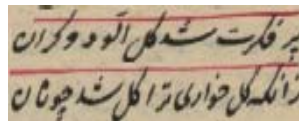 پر فکرت شد گل آلود و گران
زانکه گل خواری ترا گل شد چو نان